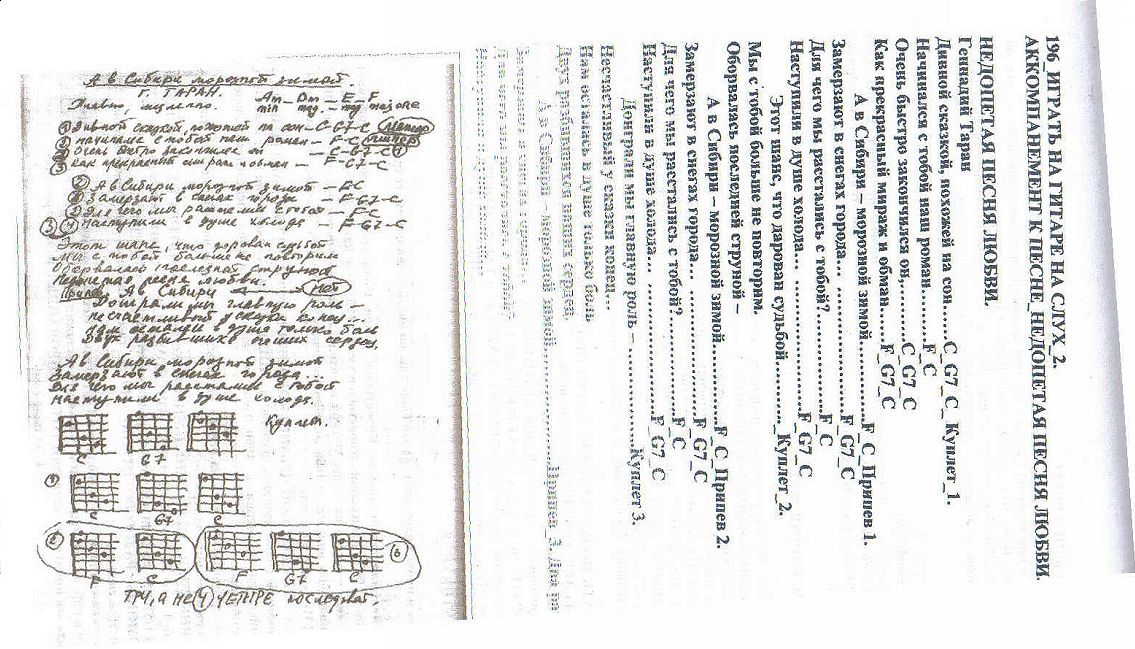 196_ИГРАТЬ НА ГИТАРЕ НА СЛУХ_2.
АККОМПАНЕМЕНТ К ПЕСНЕ_НЕДОПЕТАЯ ПЕСНЯ ЛЮБВИ.
НЕДОПЕТАЯ ПЕСНЯ ЛЮБВИ.
Геннадий Таран
Дивной сказкой, похожей на сон……..C_G7_C_Куплет_1.
Начинался с тобой наш роман…….F_C
Очень быстро закончился он,………C_G7_C
Как прекрасный мираж и обман……F_G7_C
А в Сибири – морозной зимой…………..F_C_Припев 1.
Замерзают в снегах города…………………F_G7_C
Для чего мы расстались с тобой?…………F_C
Наступили в душе холода… ………………F_G7_C
Этот шанс, что дарован судьбой…………_Куплет_2.
Мы с тобой больше не повторим.
Оборвалась последней струной –
А в Сибири – морозной зимой…………F_C_Припев 2.
Замерзают в снегах города… ………………F_G7_C
Для чего мы расстались с тобой?…………..F_C
Наступили в душе холода… ………………..F_G7_C
Доиграли мы главную роль – …………….Куплет 3.
Несчастливый у сказки конец…
Нам осталась в душе только боль
Двух разбившихся наших сердец.
А в Сибири – морозной зимой………………Припев_3. Два ра
А в Сибири морозной зимой
Г. ТАРАН.
Плавно, медленно. Am – Dm – E – F
① Дивной сказкой, похожей на сон – C-G7-C
начинался с тобой наш роман – F-C
очень быстро закончился он – C-G7-C
как прекрасный мираж и обман – F-G7-C
② А в Сибири морозной зимой – FC
Замерзают в снегах города – F-G7-C
Для чего мы расстались с тобой – F-C
наступили в душе холода – F-G7-C
Этот шанс, что дарован судьбой
мы с тобой больше не повторим
Оборвалась последней струной
Недопетая песня любви.
Припев А в Сибири
Доиграли мы главную роль –
несчастливый у сказки конец…
нам осталась в душе только боль
Двух разбившихся наших сердец.
А в Сибири морозной зимой
Замерзают в снегах города…
для чего мы расстались с тобой
наступили в душе холода.
Куплет.
C G7
① C G7 C
② F C F G7 C ⑥
ТРИ, а не ④ ЧЕТЫРЕ последоват.